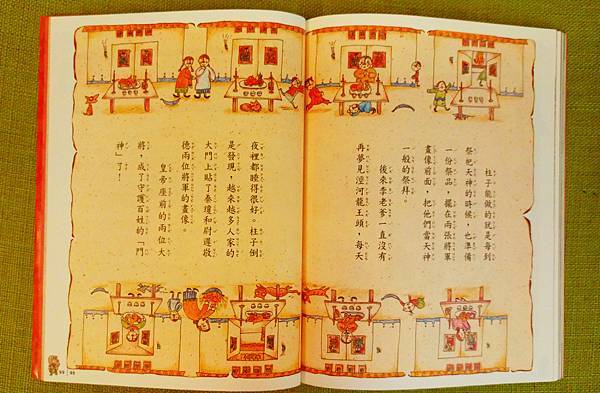 柱子能做的就是每到
祭祀天神的時候，也準備
一份祭品，擺在兩張將軍
畫像前面，把他們當天神
一般的祭拜。
後來李老爹一直沒有
再夢見涇河龍王頭，每天
夜裡都睡得很好。柱子倒
是發現，越來越多人家的
大門上貼了秦瓊和尉遲敬
德兩位將軍的畫像。
皇帝座前的兩位大
將，成了守護百姓的「門
神」了！